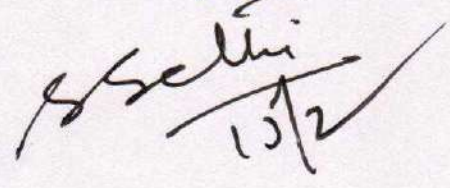 SSethi
13/2